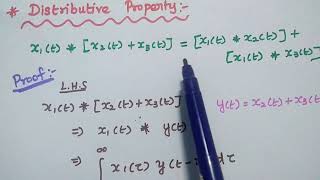 * Distributive Property:-
x₁(t) * [x₂(t) + x₃(t)] = [x₁(t) * x₂(t)] +
[x₁(t) * x₃(t)]
Proof:-
L.H.S
x₁(t) * [x₂(t) + x₃(t)]
⇒ x₁(t) * y(t)
y(t) = x₂(t) + x₃(t)
⇒ ∫ x₁(τ) y(t- dτ
∞